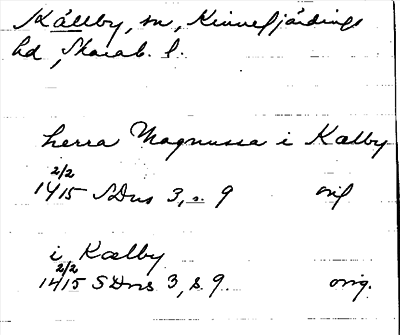 Källby, sn, Kinnefjärdings
hd, Skarab. l.
herra Magnussa i Kælby
2/2
1415 SDns 3, s. 9 orig
i Kælby
2/2
1415 SDns 3, s. 9. orig.